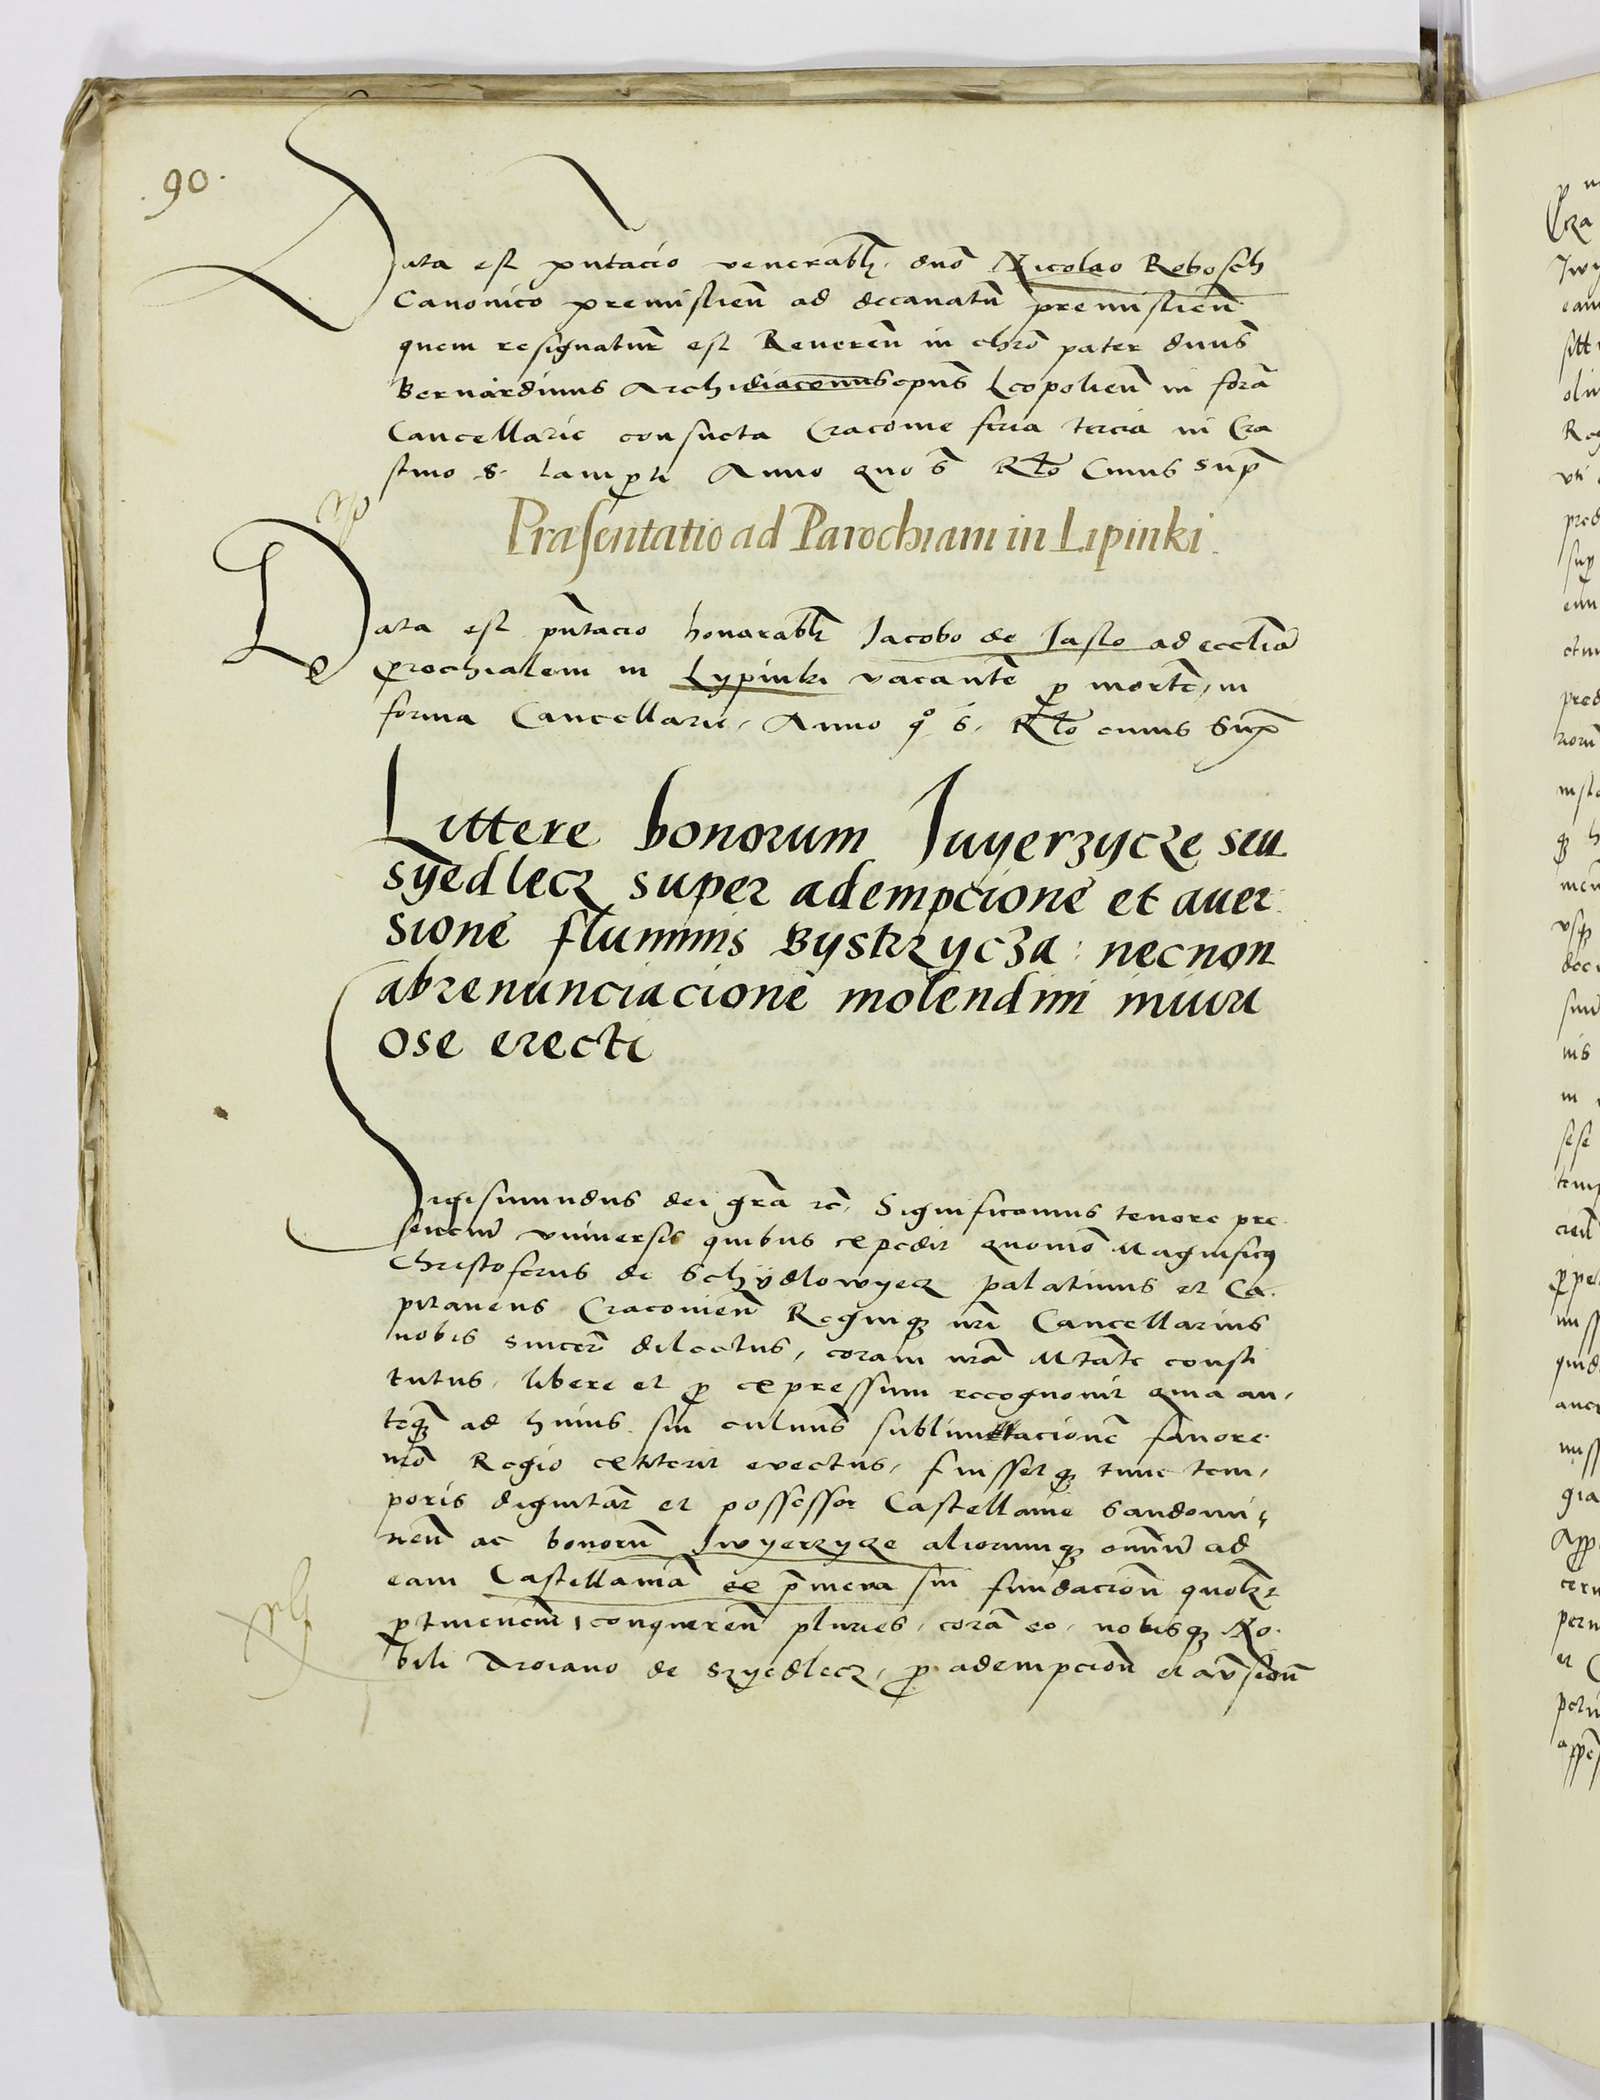 .90.
Data est pñtacio venerabłi dnõ Nicolao Rebosch
Canonico premislieñ ad decanatũ premislieñ
quem resignatur̃ est Reueren̄ in chrõ pater dnũs
Bernardinus Archidiaconus epũs Leopolieñ in forã
Cancellarie consueta Cracouie feria tercia in Cra
stino S. lamp̱ti Anno quo s̃ Rĩo Cuius sup̃
Præsentatio ad Parochiam in Lipinki.
Data est pñtacio honorabłi Iacobo de Iaslo ad eccliã
ꝑrochialem in Lypinki vacantẽ ꝑ mortẽ, in
forma Cancellarie, Anno q° s̃, Rĩo cuius Sup̃
Littere bonorum Iuyerzycze seu
syedlecz super adempcione et auer
sione fluminis Bystrzycza: necnon
abrenunciacione molendini iniuri
ose erecti
Sigismundus dei grã rc̃, Significamus tenore pre
senciũ vniuersis quibus expedit quomõ Magnificꝯ
Christoferus de Schydlowyecz palatinus et Ca
pitaneus Cracouieñ Regniqꝫ nri Cancellarius
nobis sincer̃ dilectus, coram nrã Mtãte consti
tutus, libere et ꝑ expressum recognouit quia an,
teqꝫ ad huius sui culmiñs sublimitacionẽ fauore
nrõ Regio extiterit euectus, fuissetqꝫ tunc tem,
poris dignitar̃ et possessor Castellanie Sandomi,
rieñ ac bonorũ Iwyerzycze aliorumqꝫ omniũ ad
eam Castellaniã ex p̃meua sui fundacioñ quolꝫt
ꝑtinenciũ, conquereñ pluries, corã eo, nobisqꝫ No
bili Troiano de Szyedlecz, ꝓ adempcioñ et au̾sioñ